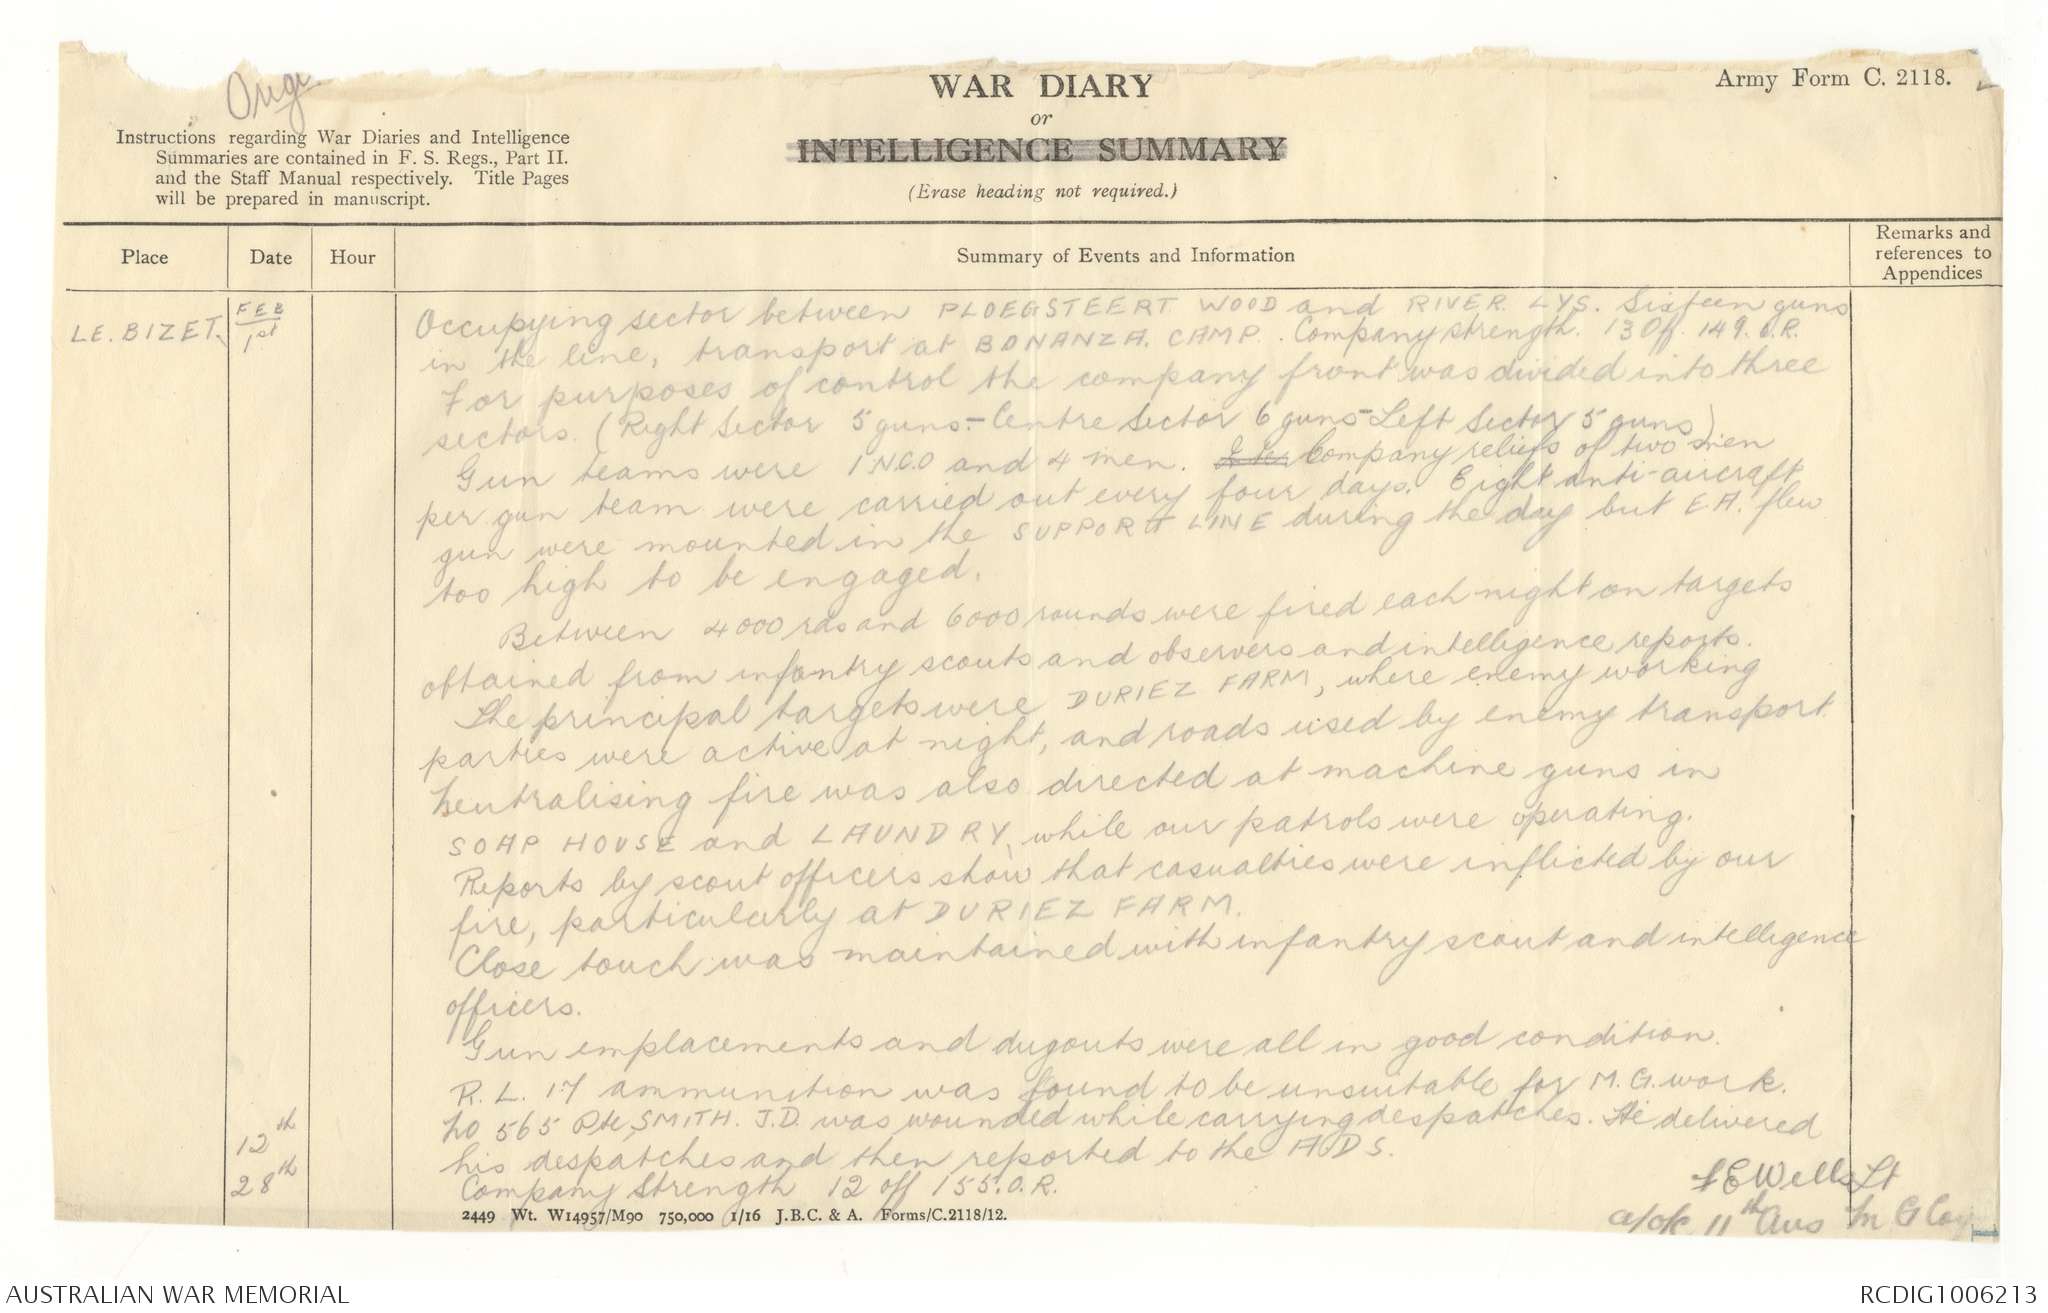 Origi
WAR DIARY
or
INTELLIGENCE SUMMARY
(Erase heading not required.)
Army Form C. 2118.
Instructions regarding War Diaries and Intelligence
Summaries are contained in F. S. Regs., Part II.
and the Staff Manual respectively. Title Pages
will be prepared in manuscript.
Place
Date
Hour
Summary of Events and Information
Remarks and
references to
Appendices
LE. BIZET.
FEB
1st
Occupying sector between PLOEGSTEERT WOOD and RIVER LYS. Sixteen guns
in the line, transport at BONANZA. CAMP. Company strength. 13 Off. 149. O.R.
For purposes of control the company front was divided into three
sectors. (Right Sector 5 guns - Centre Sector 6 guns - Left Sector 5 guns)
Gun teams were 1 N.C.O and 4 men. Company reliefs of two men
per gun team were carried out every four days. Eight anti-aircraft
gun were mounted in the SUPPORT LINE during the day but E.A. flew
too high to be engaged.
Between 4000 rds and 6000 rounds were fired each night on targets
obtained from infantry scouts and observers and intelligence reports.
The principal targets were DURIEZ FARM, where enemy working
parties were active at night, and roads used by enemy transport.
Neutralising fire was also directed at machine guns in
SOAP HOUSE and LAUNDRY, while our patrols were operating.
Reports by scout officers show that casualties were inflicted by our
fire, particularly at DURIEZ FARM.
Close touch was maintained with infantry scout and intelligence
officers.
Gun emplacements and dugouts were all in good condition.
R. L. 17 ammunition was found to be unsuitable for M.G. work.
12th
No 565 Pte, SMITH. J.D. was wounded while carrying despatches. He delivered
his despatches and then reported to the A.D.S.
28th
Company Strength 12 off 155. O.R.
E Wells Lt
a/o/c 11th Aus M G Coy
2449 Wt. W14957/M90 750,000 1/16 J.B.C. & A. Forms/C.2118/12.
AUSTRALIAN WAR MEMORIAL
RCDIG1006213